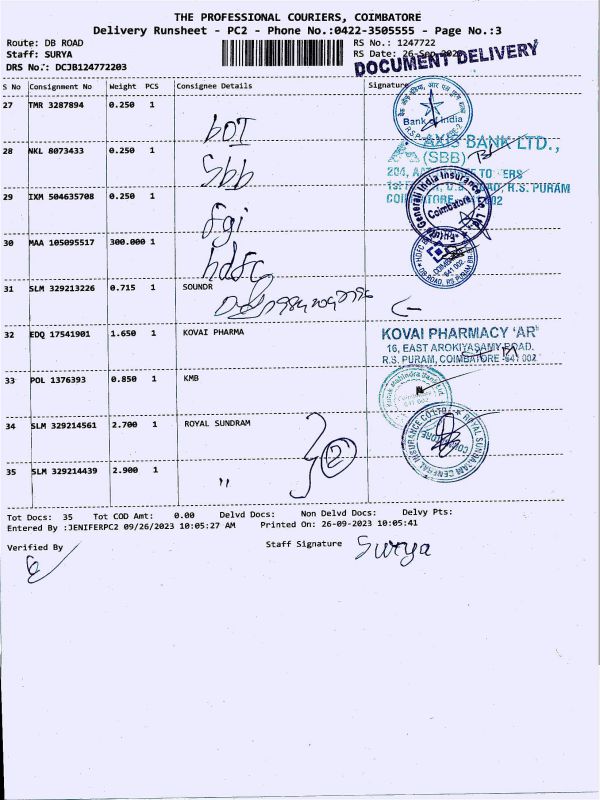 THE PROFESSIONAL COURIERS, COIMBATORE
Delivery Runsheet - PC2 - Phone No.:0422-3505555 - Page No.:3
Route: DB ROAD
RS No.: 1247722
Staff: SURYA
RS Date: 26-Sep-2023
DRS No.: DCJB124772203
DOCUMENT DELIVERY
S No Consignment No Weight PCS Consignee Details Signature
27 TMR 3287894 0.250 1 BOI
Bank of India
28 NKL 8073433 0.250 1 Sbb
AXIS BANK LTD.,
(SBB)
R.S. PURAM
29 IXM 504635708 0.250 1 fgi
Generali India Insurance Co. Ltd.
Coimbatore
30 MAA 105095517 300.000 1 hdfc
31 SLM 329213226 0.715 1 SOUNDR
32 EDQ 17541901 1.650 1 KOVAI PHARMA
KOVAI PHARMACY 'AR'
16, EAST AROKIYASAMY ROAD,
R.S. PURAM, COIMBATORE - 641 002
33 POL 1376393 0.850 1 KMB
34 SLM 329214561 2.700 1 ROYAL SUNDRAM
ROYAL SUNDARAM GENERAL INSURANCE CO LTD
2
35 SLM 329214439 2.900 1 "
Tot Docs: 35 Tot COD Amt: 0.00 Delvd Docs: Non Delvd Docs: Delvy Pts:
Entered By :JENIFERPC2 09/26/2023 10:05:27 AM Printed On: 26-09-2023 10:05:41
Verified By
Staff Signature Surya